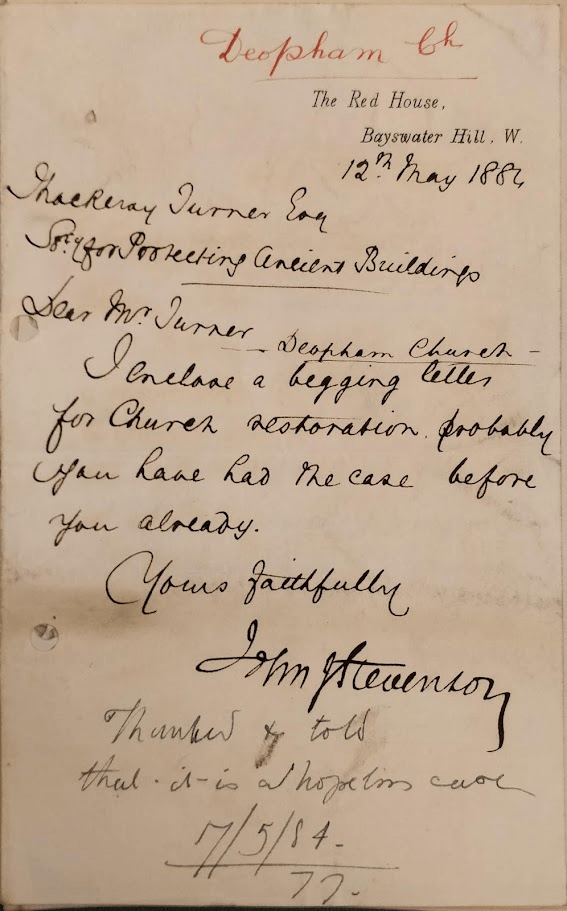 Deopham Ch
The Red House,
Bayswater Hill, W.
12th May 1884
Thackeray Turner Esq
Socy for Protecting Ancient Buildings
Dear Mr Turner
— Deopham Church —
I enclose a begging letter
for Church restoration. probably
you have had the case before
you already.
Yours faithfully
John J Stevenson
Thanked & told
that it is a hopeless case
/5/84.